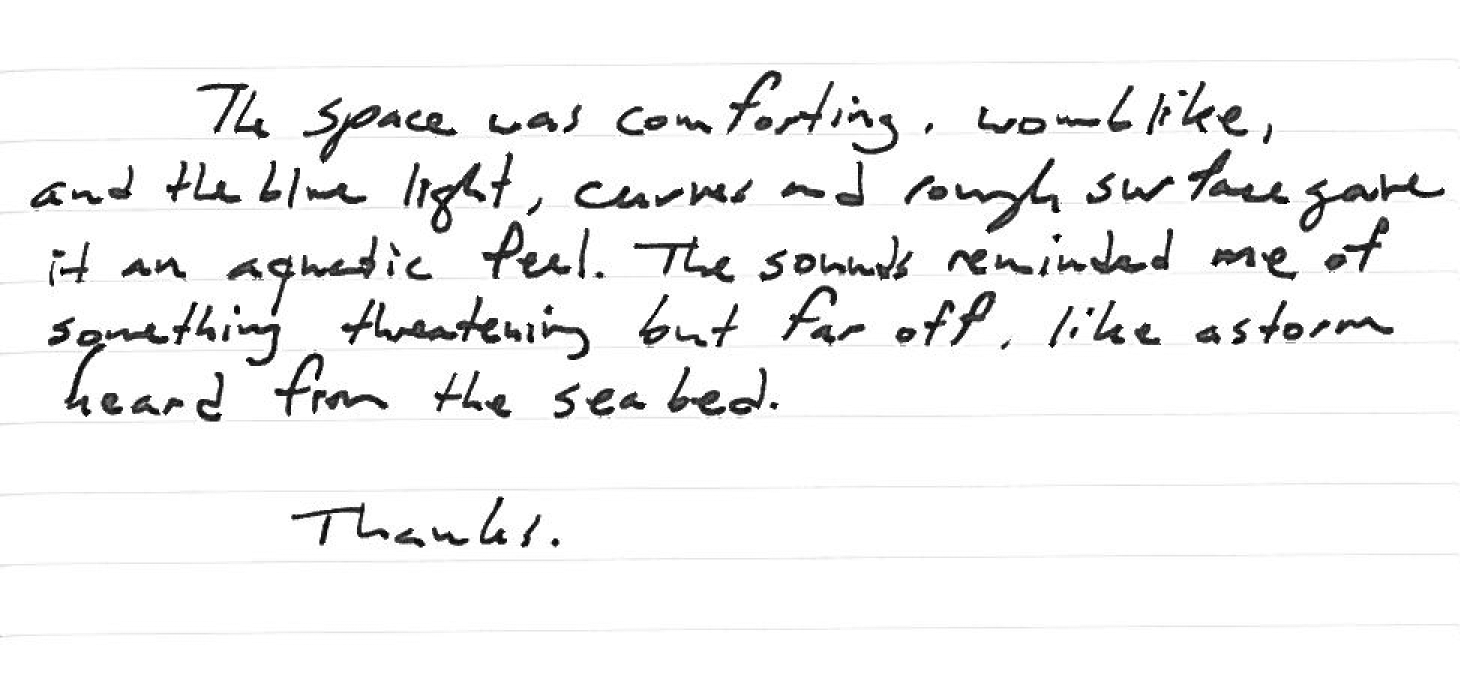 The space was comforting, womblike,
and the blue light, curves and rough surface gave
it an aquatic feel. The sounds reminded me of
something threatening but far off, like a storm
heard from the sea bed.
Thanks.